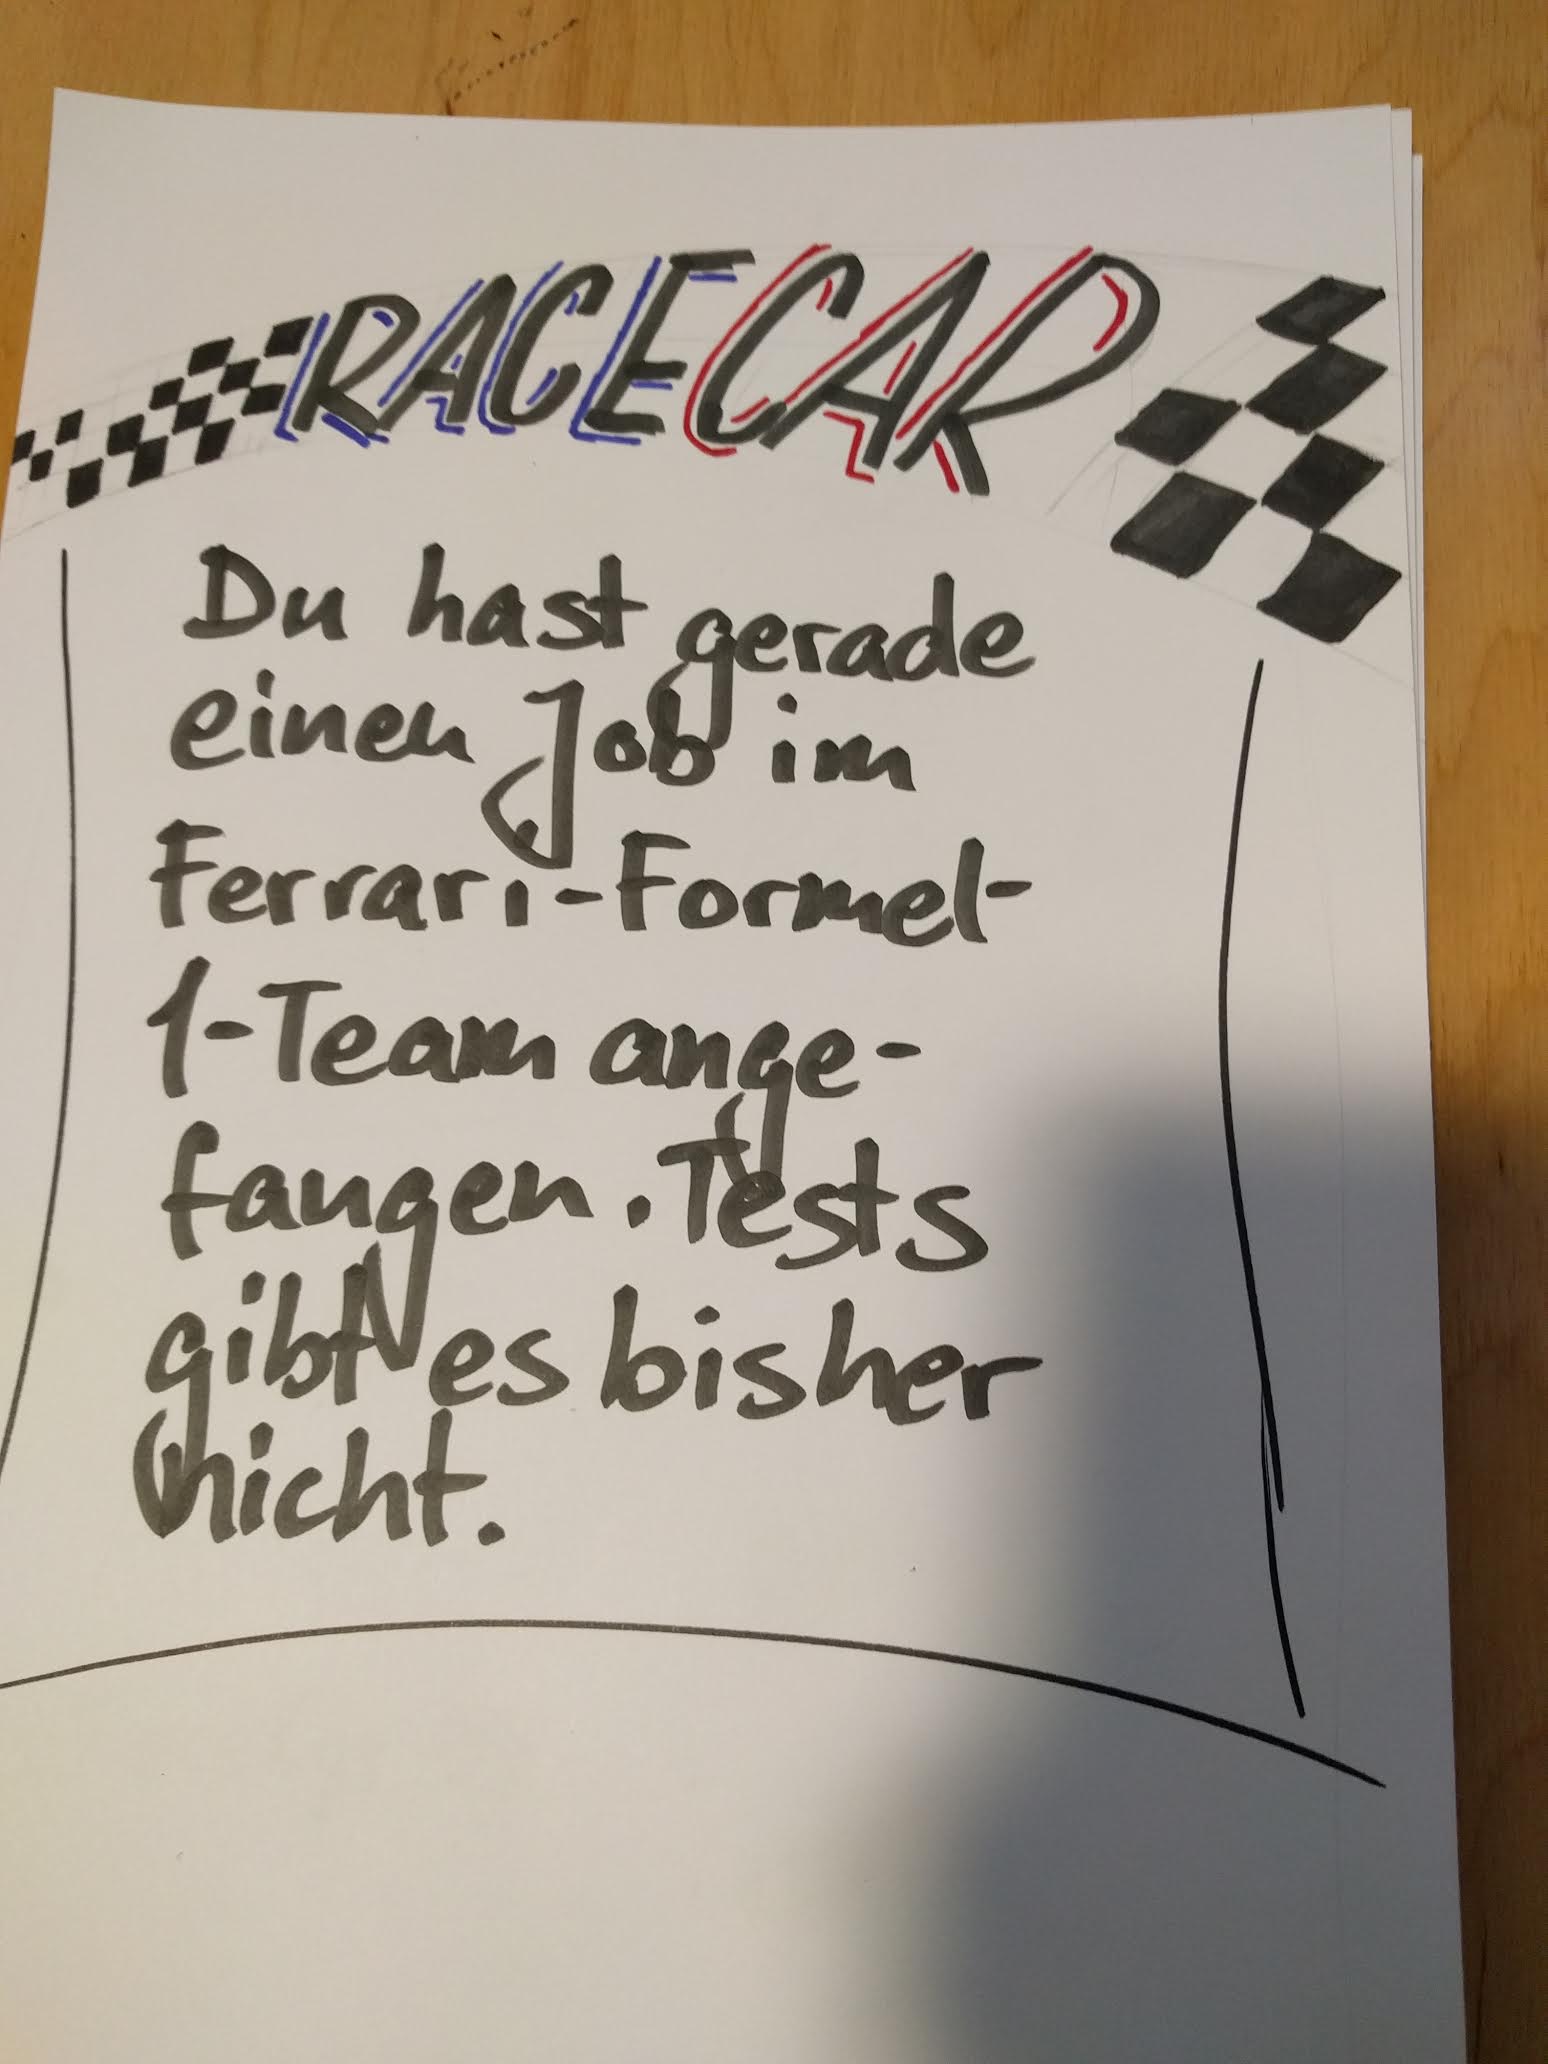 RACECAR
Du hast gerade
einen Job im
Ferrari-Formel-
1-Team ange-
fangen. Tests
gibt es bisher
nicht.